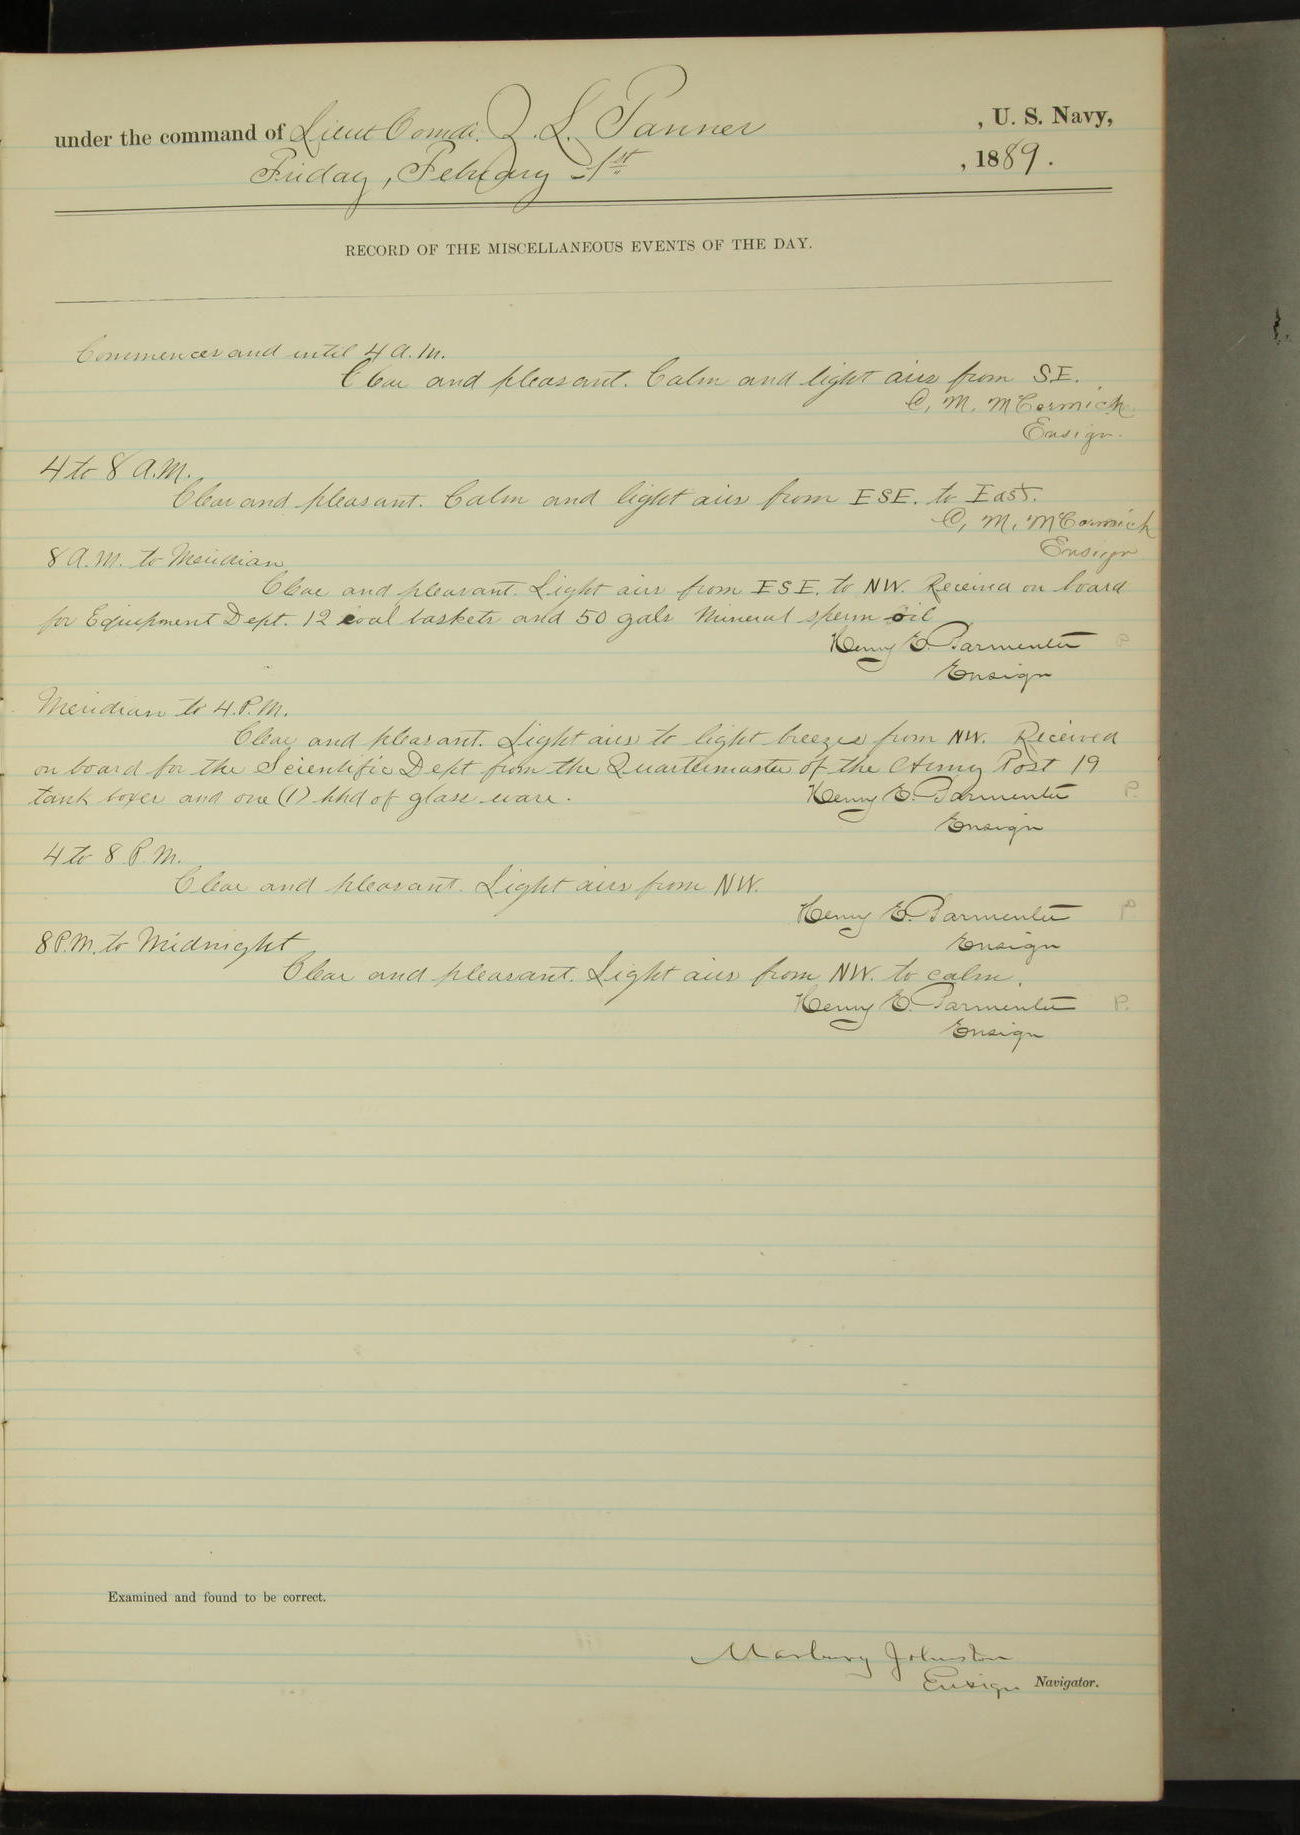 under the command of Lieut Comdr. Z. L. Tanner, U. S. Navy,
Friday, February 1st, 1889.
RECORD OF THE MISCELLANEOUS EVENTS OF THE DAY.
Commences and until 4 A.M.
Clear and pleasant. Calm and light airs from SE.
C. M. McCormick
Ensign.
4 to 8 A.M.
Clear and pleasant. Calm and light airs from ESE. to East.
C. M. McCormick
Ensign
8 A.M. to Meridian
Clear and pleasant. Light airs from ESE. to NW. Received on board
for Equipment Dept. 12 coal baskets and 50 gals Mineral sperm oil
Henry E. Parmenter P
Ensign
Meridian to 4 P.M.
Clear and pleasant. Light airs to light breezes from NW. Received
on board for the Scientific Dept from the Quartermaster of the Army Post 19
tank boxes and one (1) hhd of glass ware.
Henry E. Parmenter P.
Ensign
4 to 8 P.M.
Clear and pleasant. Light airs from NW.
Henry E. Parmenter P
Ensign
8 P.M. to Midnight
Clear and pleasant. Light airs from NW. to calm.
Henry E. Parmenter P.
Ensign
Examined and found to be correct.
Marbury Johnston
Ensign Navigator.